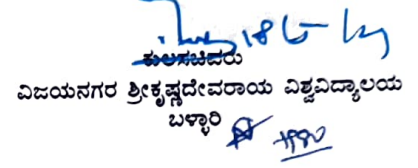 ಕುಲಸಚಿವರು
ವಿಜಯನಗರ ಶ್ರೀಕೃಷ್ಣದೇವರಾಯ ವಿಶ್ವವಿದ್ಯಾಲಯ
ಬಳ್ಳಾರಿ